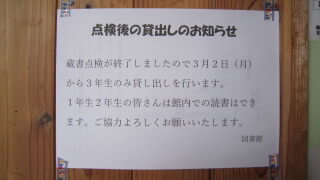 点検後の貸出しのお知らせ
蔵書点検が終了しましたので３月２日（月）
から３年生のみ貸し出しを行います。
１年生２年生の皆さんは館内での読書はでき
ます。ご協力よろしくお願いいたします。
図書館